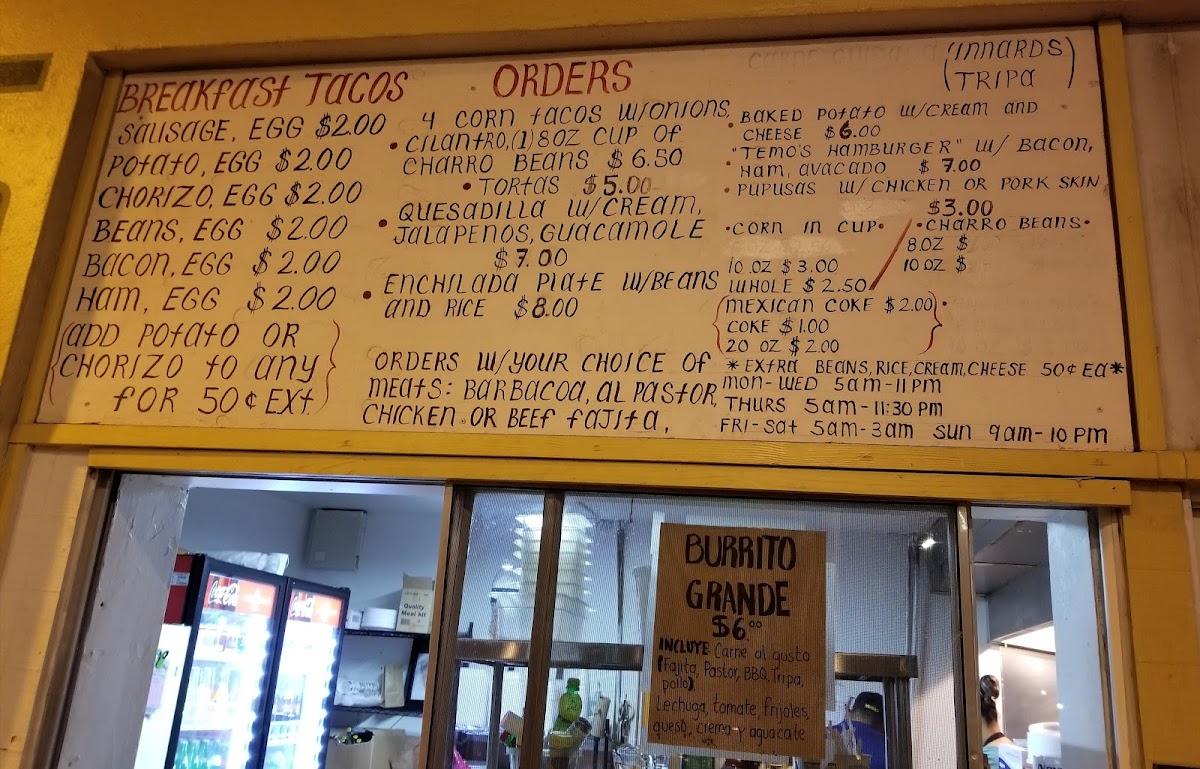 BREAKfASt TACOS
SAUSAGE, EGG $2.00
POtAtO, EGG $2.00
CHORIZO, EGG $2.00
BEANS, EGG $2.00
BACON, EGG $2.00
HAM, EGG $2.00
(ADD POtAtO OR
CHORIZO to any
fOR 50¢ EXt)
ORDERS
4 CORN tACOS W/ONIONS,
• CILANtRO,(1) 8OZ CUP Of
CHARRO BEANS $6.50
• TORtAS $5.00
• QUESADILLA W/CREAM,
JALAPENOS, GUACAMOLE
$7.00
• ENCHILADA PLAtE W/BEANS
AND RICE $8.00
ORDERS W/YOUR CHOICE OF
MEAtS: BARBACOA, AL PAStOR,
CHICKEN OR BEEf fAJItA,
(INNARDS)
(TRIPA)
• BAKED POtAtO W/CREAM AND
CHEESE $6.00
• "TEMO'S HAMBURGER" W/ BACON,
HAM, AVACADO $7.00
• PUPUSAS W/CHICKEN OR PORK SKIN
$3.00
• CORN IN CUP •
10 OZ $3.00
WHOLE $2.50
• CHARRO BEANS •
8 OZ $
10 OZ $
(MEXICAN COKE $2.00) •
COKE $1.00
20 OZ $2.00
* EXtRA BEANS, RICE, CREAM, CHEESE 50¢ EA *
MON-WED 5am-11PM
THURS 5am-11:30 PM
FRI-SAt 5am-3am SUN 9am-10PM
BURRITO
GRANDE
$6.00
INCLUYE Carne al gusto
(fajita, Pastor, BBQ, Tripa,
pollo).
Lechuga, tomate, frijoles,
queso, crema y aguacate
Coca-Cola
Coca-Cola
Quality
Meal Kit